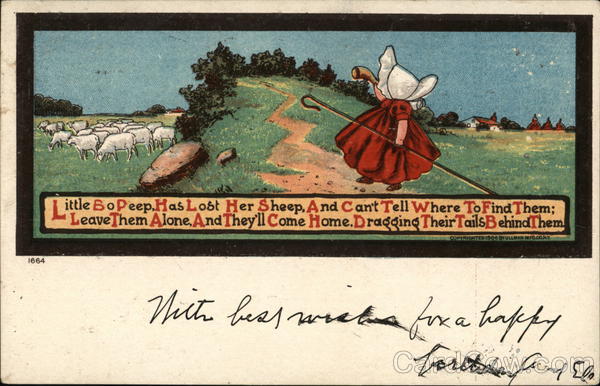 Little Bo Peep, Has Lost Her Sheep, And Can't Tell Where To Find Them;
Leave Them Alone, And They'll Come Home, Dragging Their Tails Behind Them.
COPYRIGHTED 1905 BY ULLMAN MFG. CO. N.Y.
1664
With best wishes for a happy
CardCow.com